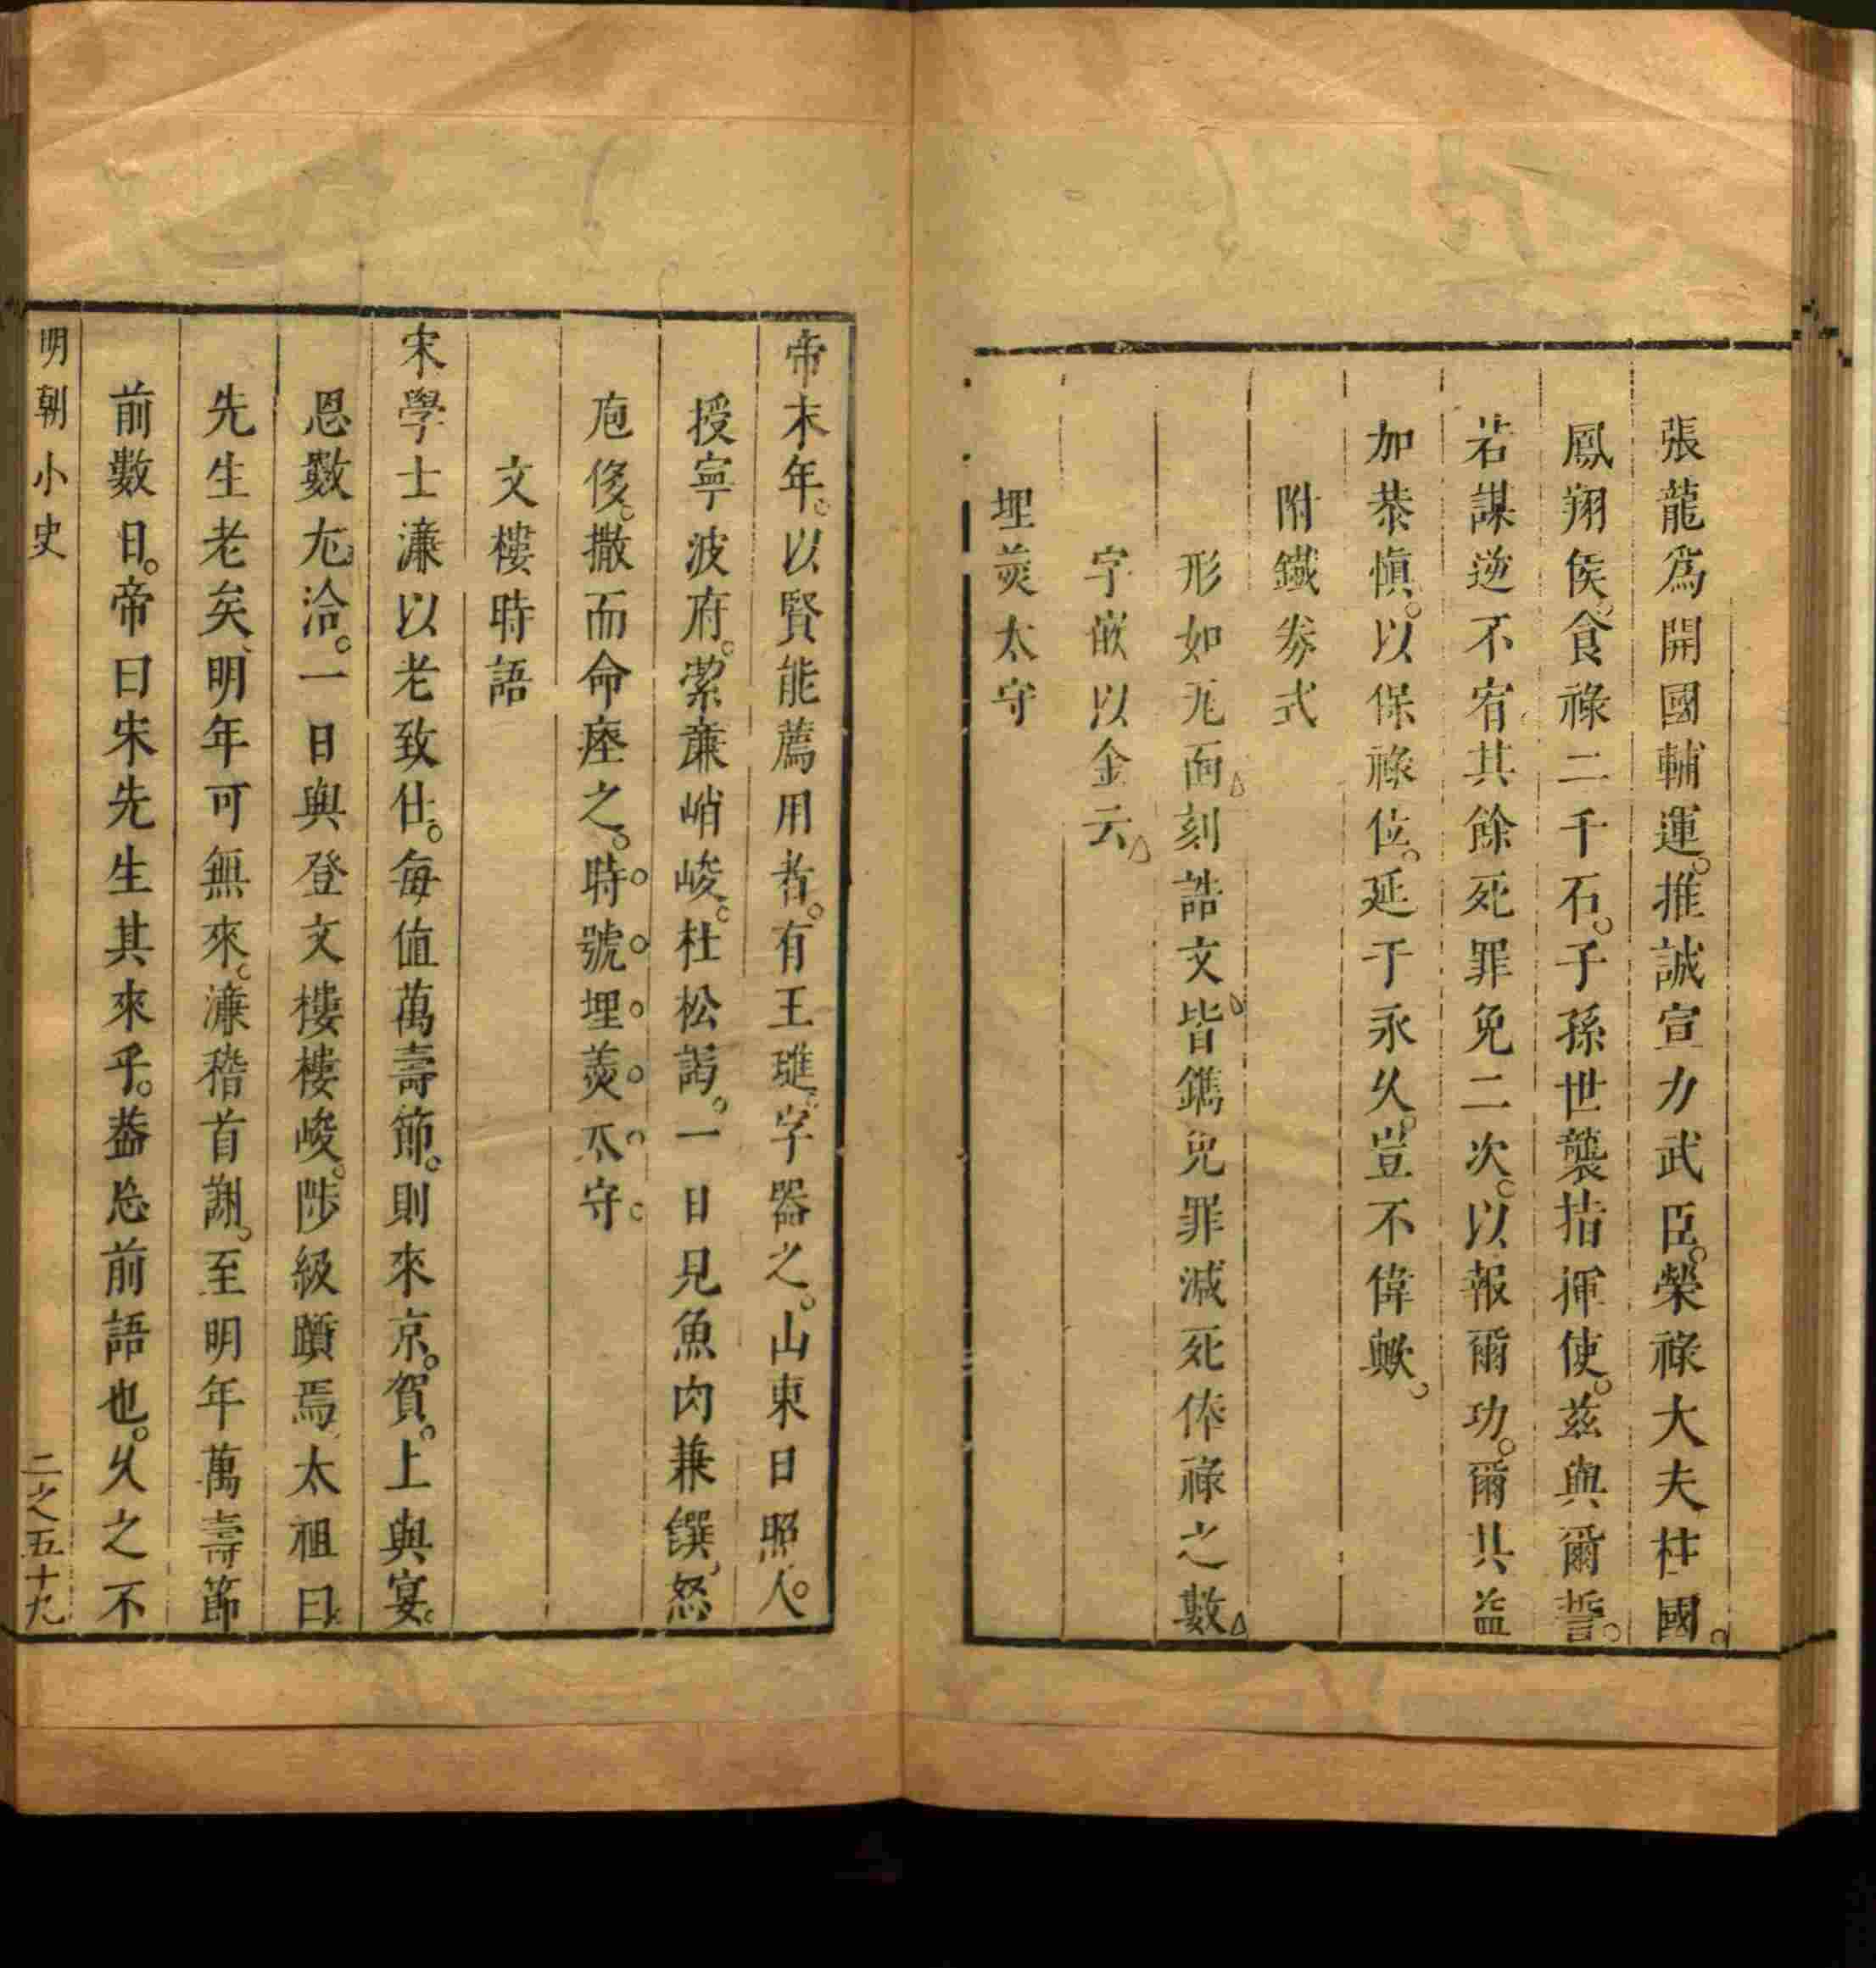 張龍爲開國輔運。推誠宣力武臣。榮祿大夫柱國。
鳳翔侯。食祿二千石。子孫世襲指揮使。茲與爾誓。
若謀逆不宥其餘死罪免二次。以報爾功。爾其益
加恭愼。以保祿位。延于永久。豈不偉歟。
附鐵券式
形如瓦面刻誥文皆鐫免罪減死俸祿之數
字嵌以金云
埋羹太守
帝末年。以賢能薦用者。有王璡字器之。山東日照人。
授寧波府。潔廉峭峻。杜松謁。一日見魚肉兼饌、怒
庖侈。撒而命瘞之。時號埋羹太守
文樓時語
宋學士濂以老致仕。每值萬壽節。則來京。賀。上與宴。
恩數尢洽。一日與登文樓樓峻。陟級躓焉、太祖曰
先生老矣、明年可無來。濂稽首謝。至明年萬壽節
前數日。帝曰宋先生其來乎。葢忘前語也。久之不
明朝小史
二之五十九